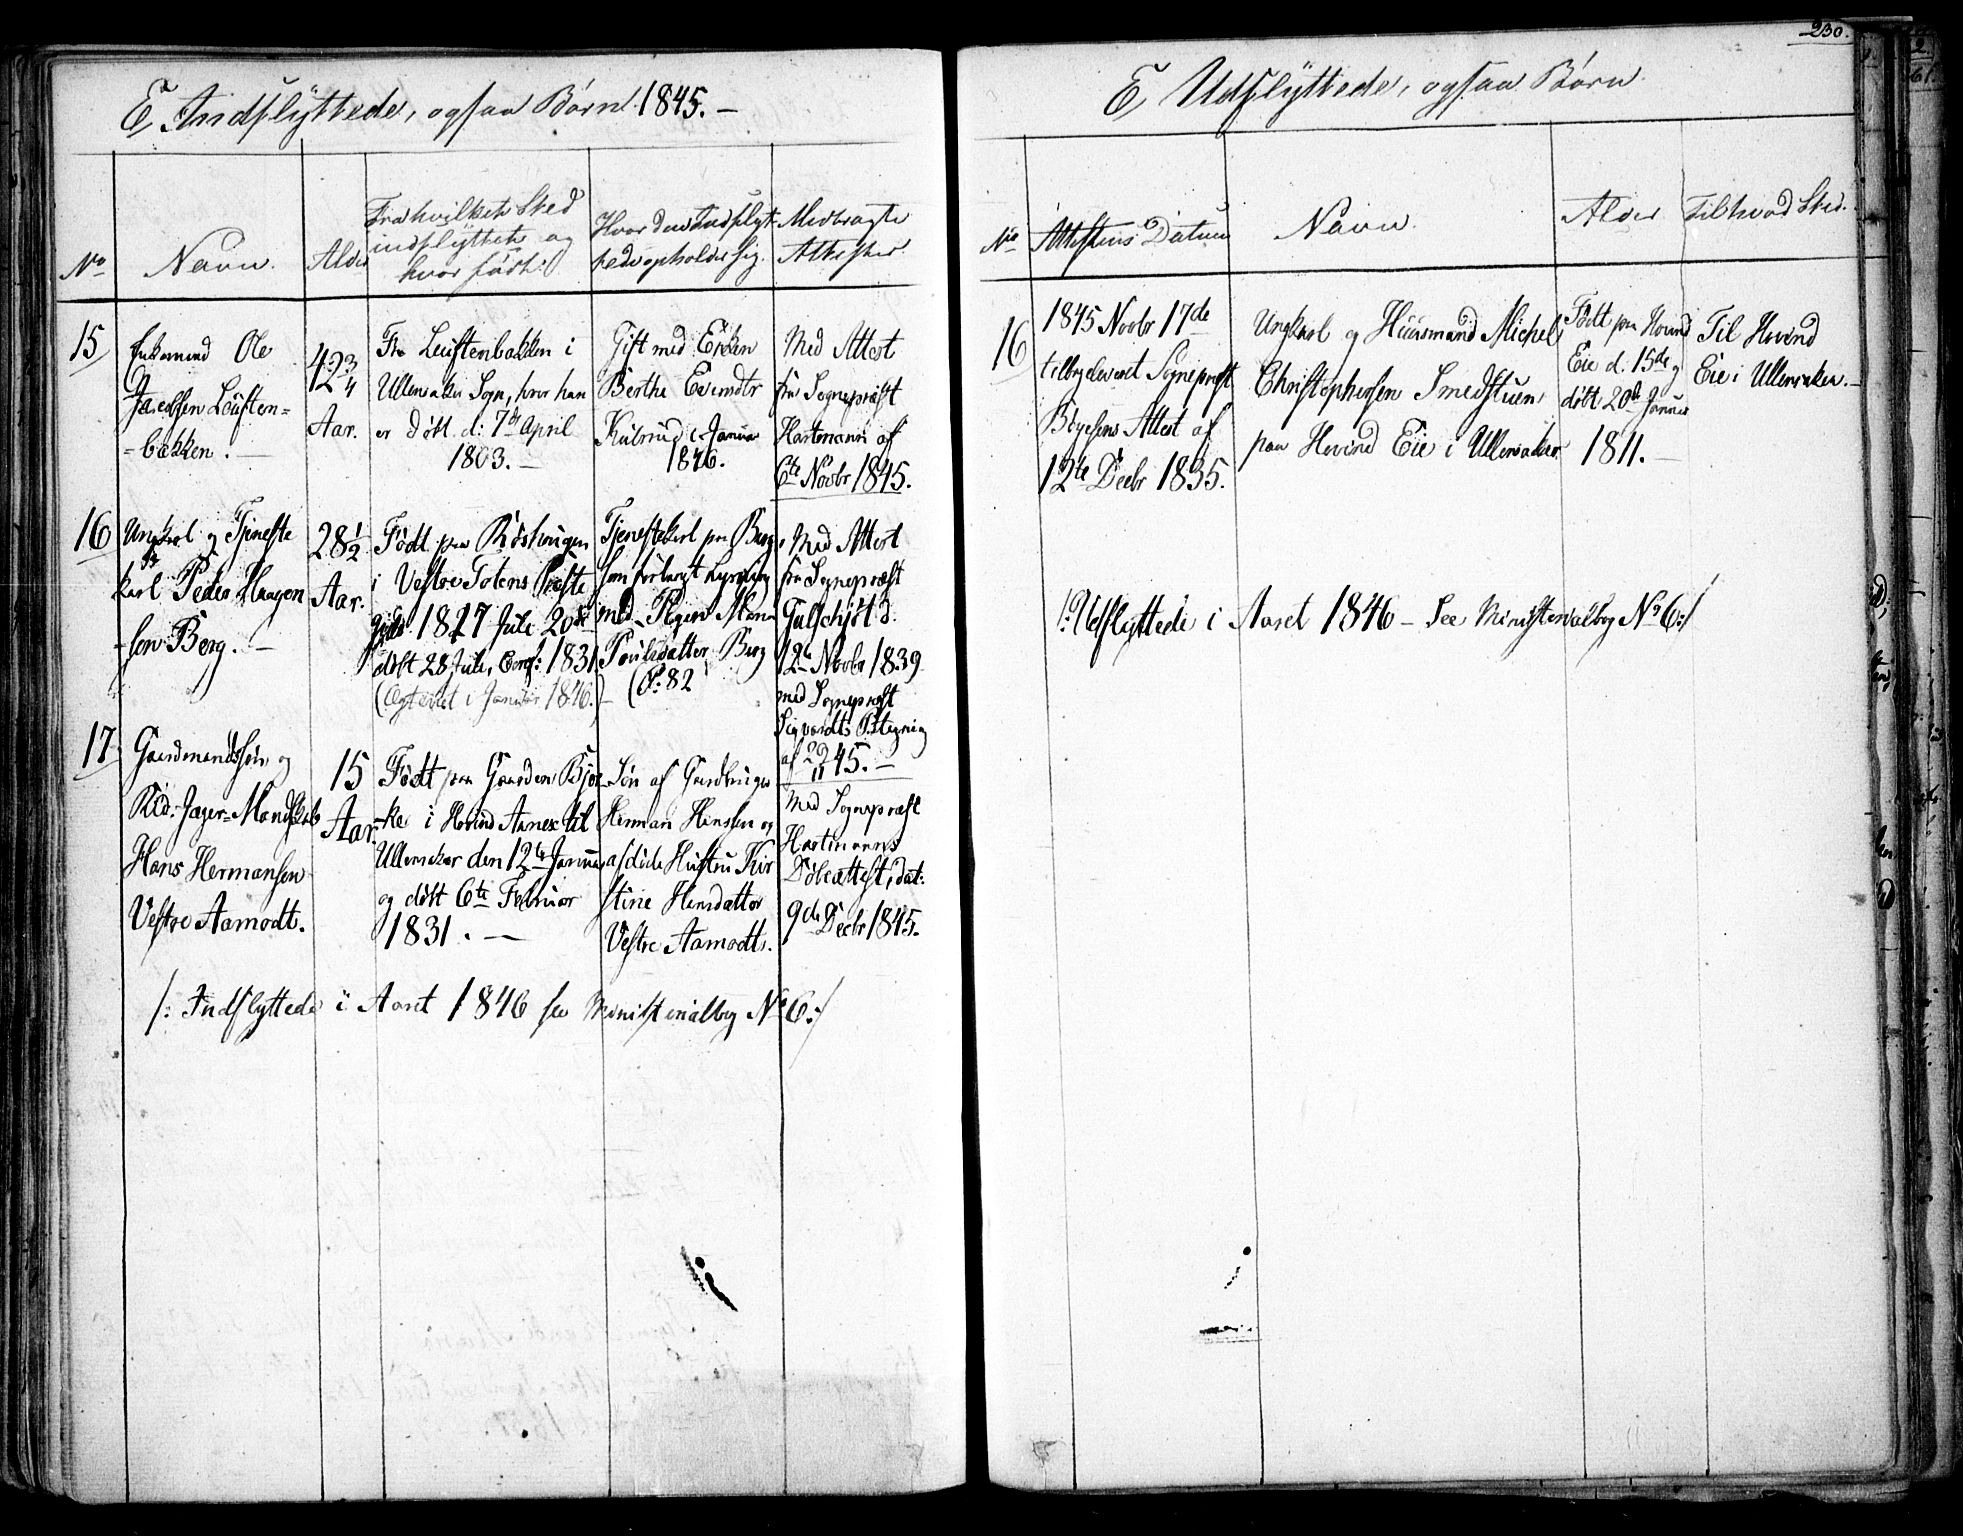 E, Indflyttede, ogsaa Børn 1845. –
No
Navn.
Alder
Fra hvilket Sted
indflyttet og
hvor født.
Hvor den Indflyt-
tede opholder sig.
Medbragte
Attester.
15
Enkemand Ole
Jacobsen Løusten=
=bakken. –
42 3/4
Aar.
Fra Løustenbakken i
Ullensaker Sogn, hvor han
er døbt d: 7de April
1803. –
Gift med Enken
Berthe Evensdtr
Kulsrud i Januar
1846.
Med Attest
fra Sognepræst
Hartmann af
6te Novbr 1845.
16
Ungkarl og Tjeneste
karl Peder Haagen
-sen Berg. –
28 1/2
Aar.
Født paa
i Vestre Totens Præste
gjeld 1817 Juli 20de
døbt 28 Juli, Conf: 1831
(Ægteviet i Januar 1846.)
Tjenestekarl paa Berg,
som forlangt Lysning
med Pigen
Poulsdatter Berg
(S: 82
Med Attest
fra Sognepræst
12te Novbr 1839
med Sognepræst
Sigvardts Paategning
af 29/11 45. –
17
Gaardmandssøn og
Rid: Jæger=Mandskab
Hans Hermansen
Vestre Aamodt.
15
Aar.
Født paa Gaarden Bjer
-ke i Hovind Annex til
Ullensaker den 12te Januar
og døbt 6te Februar
1831. –
Søn af Gaardbruger
Herman Hansen og
afdøde Hustru Kir
stine Hansdatter
Vestre Aamodt.
Med Sognepræst
Hartmanns
Døbeattest, dat:
9de Decbr 1845.
/: Indflyttede i Aaret 1846 see Ministerialbog No 6:/
230.
E, Udflyttede, ogsaa Børn
No
Attestens Datum
Navn.
Alder
Til hvad Sted.
16
1845 Novbr 17de
tilbageleveret Sognepræst
Bøyesens Attest af
12te Decbr 1835.
Ungkarl og Huusmand Michel
Christophersen Smedstuen,
paa Hovind Eie i Ullensaker
Født paa Hovind
Eie d. 15de og
døbt 20de Januar
1811. –
Til Hovind
Eie i Ullensaker. –
/: Udflyttede i Aaret 1846 – See Ministerialbog No 6:/